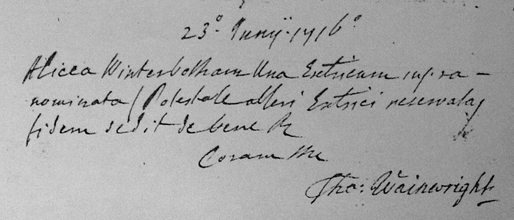 23°. Junij. 1716°
Alicea Winterbotham Una Extricum supra-
nominata (Potestate alteri Extrici reservata)
fidem dedit de bene &
Coram Me
Tho: Wainwright